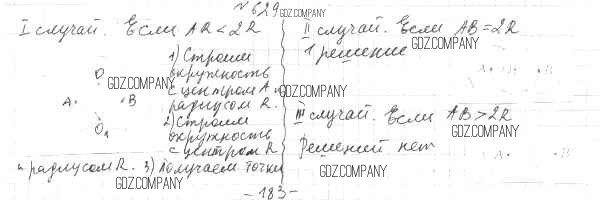 №629 GDZ.COMPANY
I случай. Если AB < 2R
1) Строим
окружность
с центром A и
радиусом R.
2) Строим
окружность
с центром R
и радиусом R. 3) Получаем точки
O
A B
O₁
GDZ.COMPANY
GDZ.COMPANY
II случай. Если AB = 2R
1 решение
GDZ.COMPANY
A B
GDZ.COMPANY
III случай. Если AB > 2R
GDZ.COMPANY
Решений нет
A B
GDZ.COMPANY
- 183 -